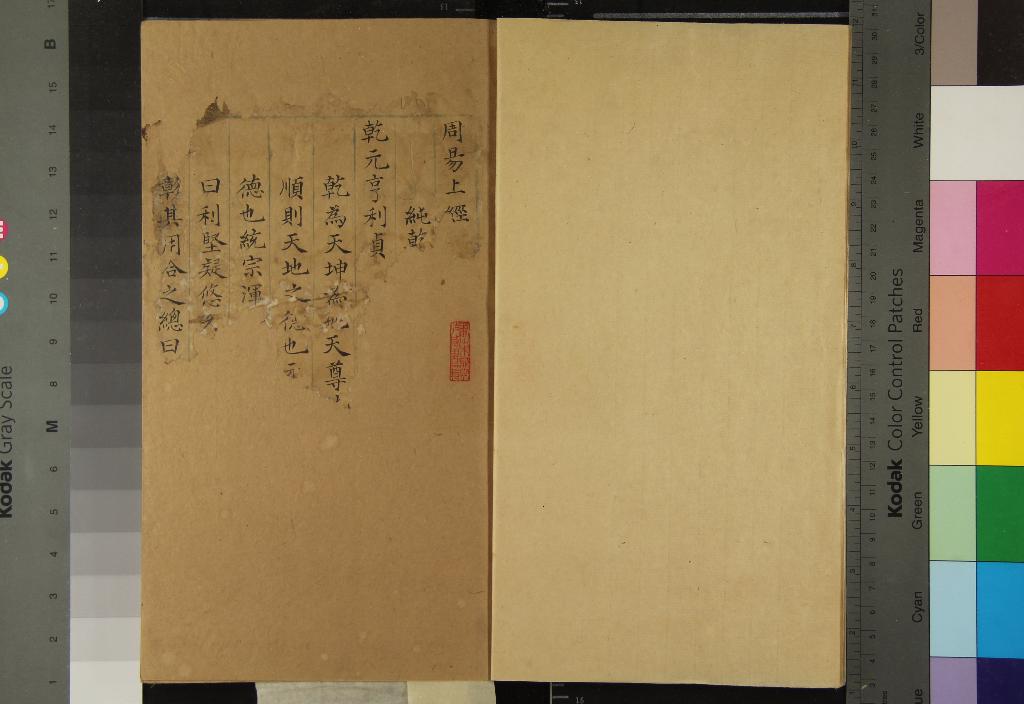 周易上經
純乾
乾元亨利貞
乾為天坤為地天尊
順則天地之德也元
德也統宗渾
曰利堅凝悠久
彰其用合之總曰
Kodak Gray Scale
B
M
Kodak Color Control Patches
3/Color
White
Magenta
Red
Yellow
Green
Cyan